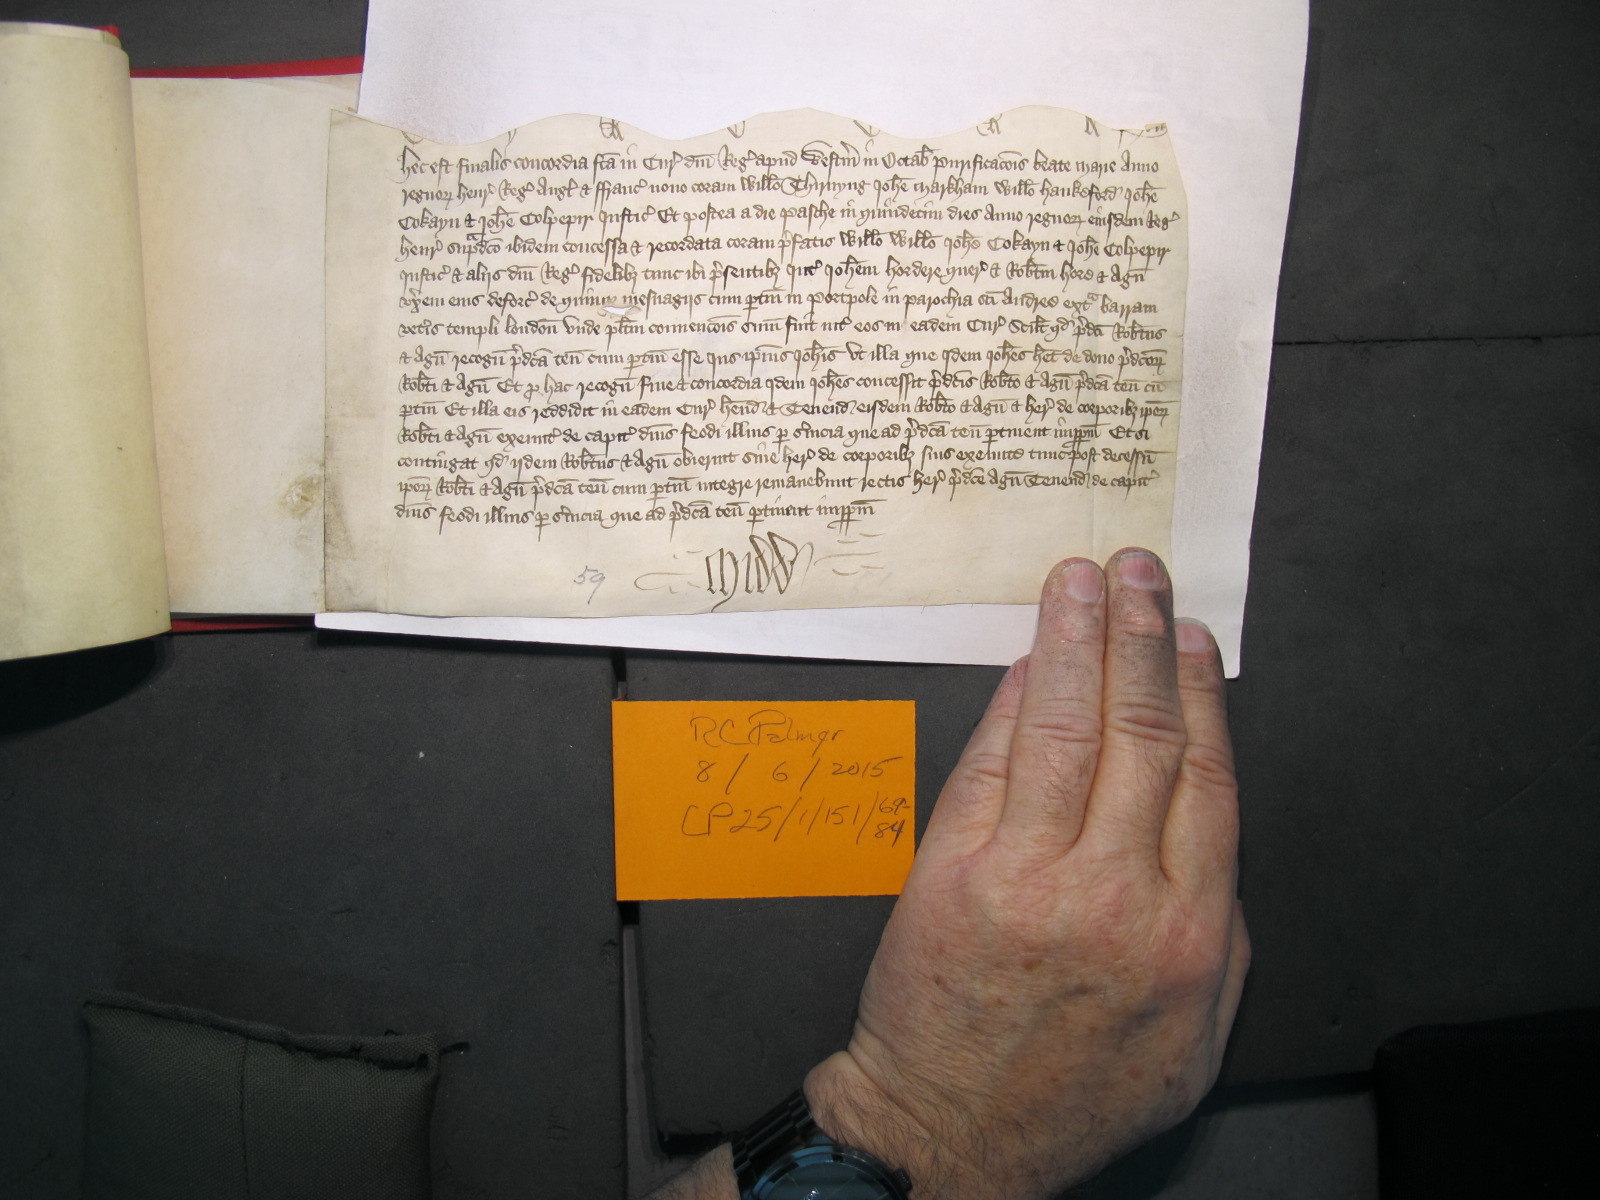 Hec est finalis concordia fc̄a in Cur̉ dn̄i Reg̉ apud Westm̄ in Octab̄ Purificac̄ois beate Marie Anno
regnor̨ Henr̉ Reg̉ Angl̉ & ffranc̉ nono coram Will̄o Thirnyng Joh̄e Markham Will̄o Hankeford Joh̄e
Cokayn & Joh̄e Colpepir Justic̉ Et postea a die Pasche in quindecim dies Anno regnor̨ eiusdem Reg̉
Henr̉ sup̄dc̄o ibidem concessa & recordata coram p̄fatis Will̄o Will̄o Joh̄e Cokayn & Joh̄e Colpepir
Justic̉ & alijs dn̄i Reg̉ fidelib̨ tunc ibi p̄sentib̨ Int̉ Joh̄em Hordere quer̉ & Rob̄tm Hore & Agn̄
vx̄em eius deforc̉ de quinq̨ mesuagijs cum p̱tin̄ in Portpole in parochia sc̄i Andree ext̄ Barram
vet̉is templi london̄ Vnde pl̄itm conuenc̄ois sum̄ fuit int̉ eos in eadem Cur̉ Scil̄t qd̉ p̄dc̄i Rob̄tus
& Agn̄ recogn̄ p̄dc̄a ten̄ cum p̱tin̄ esse Jus ip̄ius Joh̄is Vt illa que idem Joh̄es h̄et de dono p̄dc̄or̨
Rob̄ti & Agn̄ Et p̱ hac recogn̄ fine & concordia idem Joh̄es concessit p̄dc̄is Rob̄to & Agn̄ p̄dc̄a ten̄ cū
p̱tin̄ Et illa eis reddidit in eadem Cur̉ Hend̉ & Tenend̉ eisdem Rob̄to & Agn̄ & her̉ de corporib̨ ip̄or̨
Rob̄ti & Agn̄ exeunt̉ de capit̉ dn̄is feodi illius p̱ s̉uicia que ad p̄dc̄a ten̄ p̱tinent imp̱p̄m Et si
contingat qd̉ ijdem Rob̄tus & Agn̄ obierint sine her̉ de corporib̨ suis exeunte tunc post decessū
ip̄or̨ Rob̄ti & Agn̄ p̄dc̄a ten̄ cum p̱tin̄ integre remanebunt rectis her̉ p̄dc̄e Agn̄ Tenend̉ de capit̉
dn̄is feodi illius p̱ s̉uicia que ad p̄dc̄a ten̄ p̱tinent imp̱p̄m
59
RC Palmer
8 / 6 / 2015
CP 25/1/151/69-
84